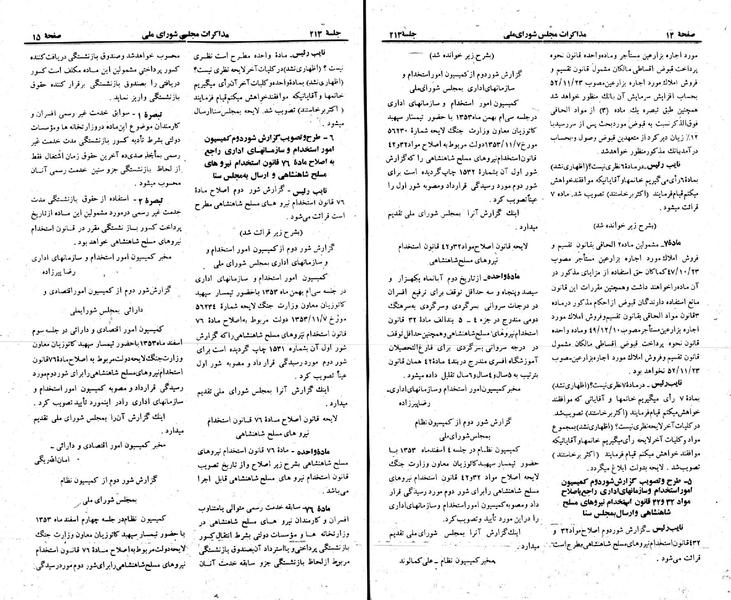 صفحهٔ ۱۴ مذاکرات مجلس شورای ملی جلسهٔ ۲۱۳
مورد اجاره بزارعین مستأجر و ماده واحده قانون نحوه
پرداخت قبوض اقساطی مالکان مشمول قانون تقسیم و
فروش املاک مورد اجاره بزارعین مصوب ۵۲/۱۱/۲۳
بحساب افزایش سرمایش آن بانک منظور خواهد شد
همچنین طبق تبصره یک ماده (۳) از مواد الحاقی
فوق‌الذکر نسبت به قبوض مورد بحث پس از سررسید با
۱۲٪ زیان دیرکرد از متعهدین قبوض وصول و بحساب
درآمد بانک مذکور منظور خواهد شد.
نایب رئیس ـ در ماده ۶ نظری نیست؟ (اظهاری نشد)
بماده ۶ رأی می‌گیریم خانمها و آقایانیکه موافقند خواهش
میکنم قیام فرمایند (اکثر برخاستند) تصویب شد. ماده ۷
قرائت میشود.
(بشرح زیر خوانده شد)
مادهٔ ۷ـ مشمولین ماده ۲ الحاقی بقانون تقسیم و
فروش املاک مورد اجاره بزارعین مستأجر مصوب
۴۷/۱۰/۲۳ کماکان حق استفاده از مزایای مذکور در
آن ماده را خواهند داشت وهمچنین مقررات این قانون
مانع استفاده دارندگان قبوض از احکام مذکور در ماده
۳ قانون مواد الحاقی بقانون تقسیم و فروش املاک مورد اجاره
بزارعین مستأجر مصوب ۴۹/۱۲/۱۰ و ماده واحده
قانون نحوه پرداخت قبوض اقساطی مالکان مشمول
قانون تقسیم و فروش املاک مورد اجاره بزارعین مصوب
۵۲/۱۱/۲۳ نخواهد بود.
نایب رئیس ـ در ماده ۷ نظری نیست؟ (اظهاری نشد)
بماده ۷ رأی می‌گیریم خانمها و آقایانی که موافقند
خواهش میکنم قیام فرمایند (اکثر برخاستند) تصویب شد.
در کلیات آخر لایحه نظری نیست؟ (اظهاری نشد) بمجموع
مواد و کلیات آخر لایحه رأی میگیریم خانمها و آقایانیکه
موافقند خواهش میکنم قیام فرمایند (اکثر برخاستند)
تصویب شد. لایحه بدولت ابلاغ میگردد.
۵ـ طرح و تصویب گزارش شور دوم کمیسیون
امور استخدام و سازمانهای اداری راجع باصلاح
مواد ۳۲ و ۴۲ قانون استخدام نیروهای مسلح
شاهنشاهی و ارسال بمجلس سنا
نایب رئیس ـ گزارش شور دوم اصلاح مواد ۳۲ و
۴۲ قانون استخدام نیروهای مسلح شاهنشاهی مطرح است
قرائت می‌شود.
(بشرح زیر خوانده شد)
گزارش شور دوم از کمیسیون امور استخدام و
سازمانهای اداری بمجلس شورای ملی
کمیسیون امور استخدام و سازمانهای اداری
در جلسه سی‌ام بهمن ماه ۱۳۵۳ با حضور تیمسار سپهبد
کاتوزیان معاون وزارت جنگ لایحه شمارهٔ ۵۶۲۳۰
مورخ ۱۳۵۳/۱۱/۷ دولت مربوط به اصلاح مواد ۳۲ و ۴۲
قانون استخدام نیروهای مسلح شاهنشاهی را که گزارش
شور اول آن بشماره ۱۵۳۲ چاپ گردیده است برای
شور دوم مورد رسیدگی قرارداد و مصوبه شور اول را
عیناً تصویب کرد.
اینک گزارش آنرا به مجلس شورای ملی تقدیم
میدارد.
لایحه قانون اصلاح مواد ۳۲ و ۴۲ قانون استخدام
نیروهای مسلح شاهنشاهی
مادهٔ واحده ـ از تاریخ دوم آبانماه یکهزار و
سیصد و پنجاه و سه حداقل توقف برای ترفیع افسران
در درجات سروانی بسرگردی و سرگردی به سرهنگ
دومی مندرج در جزء ۴ ـ ۵ بند الف مادهٔ ۳۲ قانون
استخدام نیروهای مسلح شاهنشاهی وهمچنین حداقل توقف
در درجه سروانی بسرگردی برای فارغ‌التحصیلان
آموزشگاه افسری مندرج در بند ۴ ماده ۴۲ همان قانون
بترتیب به ۵ سال و ۴ سال و ۶ سال تقلیل داده میشود.
مخبر کمیسیون امور استخدام و سازمانهای اداری ـ
رضا پیرزاده
گزارش شور دوم از کمیسیون نظام
بمجلس شورای ملی
کمیسیون نظام در جلسه ۴ اسفند ماه ۱۳۵۳ با
حضور تیمسار سپهبد کاتوزیان معاون وزارت جنگ
لایحه اصلاح مواد ۳۲ و ۴۲ قانون استخدام نیروهای
مسلح شاهنشاهی را برای شور دوم مورد رسیدگی قرار
داد و گزارش کمیسیون امور استخدام و سازمانهای اداری
را در این مورد تأیید و تصویب کرد.
اینک گزارش آنرا به مجلس شورای ملی تقدیم
میدارد.
مخبر کمیسیون نظام ـ علی کمالوند
جلسهٔ ۲۱۳ مذاکرات مجلس شورای ملی صفحهٔ ۱۵
نایب رئیس ـ مادهٔ واحده مطرح است نظری
نیست؟ (اظهاری نشد) در کلیات آخر لایحه نظری نیست؟
(اظهاری نشد) بماده واحده و کلیات آخر آن رأی میگیریم
خانمها و آقایانیکه موافقند خواهش میکنم قیام فرمایند
(اکثر برخاستند) تصویب شد. لایحه به سنا ارسال
میشود.
۶ـ طرح و تصویب گزارش شور دوم کمیسیون
امور استخدام و سازمانهای اداری راجع
به اصلاح مادهٔ ۷۶ قانون استخدام نیروهای
مسلح شاهنشاهی و ارسال به مجلس سنا
نایب رئیس ـ گزارش شور دوم اصلاح مادهٔ
۷۶ قانون استخدام نیروهای مسلح شاهنشاهی مطرح
است قرائت می‌شود.
(بشرح زیر قرائت شد)
گزارش شور دوم از کمیسیون امور استخدام
و سازمانهای اداری بمجلس شورای ملی
کمیسیون امور استخدام و سازمانهای اداری
در جلسه سی‌ام بهمن ماه ۱۳۵۳ با حضور تیمسار سپهبد
کاتوزیان معاون وزارت جنگ لایحه شمارهٔ ۵۶۲۳۴
مورخ ۱۳۵۳/۱۱/۷ دولت مربوط به اصلاح مادهٔ ۷۶
قانون استخدام نیروهای مسلح شاهنشاهی را که گزارش
شور اول آن بشماره ۱۵۳۱ چاپ گردیده است برای
شور دوم مورد رسیدگی قرار داد و مصوبه شور اول
عیناً تصویب کرد.
اینک گزارش آنرا بمجلس شورای ملی تقدیم
میدارد.
لایحه قانون اصلاح مادهٔ ۷۶ قانون استخدام
نیروهای مسلح شاهنشاهی
مادهٔ واحده ـ مادهٔ ۷۶ قانون استخدام نیروهای
مسلح شاهنشاهی بشرح زیر اصلاح و از تاریخ تصویب
قانون استخدام نیروهای مسلح شاهنشاهی قابل اجرا
می‌باشد.
مادهٔ ۷۶ـ سابقه خدمت رسمی متوالی یا متناوب
افسران و کارمندان نیروهای مسلح شاهنشاهی در
وزارتخانه‌ها و مؤسسات دولتی بشرط انتقال کسور
بازنشستگی پرداختی و یا استرداد آن بصندوق بازنشستگی
مربوط از لحاظ بازنشستگی جزو سابقه خدمت آنان
محسوب خواهد شد و صندوق بازنشستگی دریافت کننده
کسور پرداختی مشمولین این ماده مکلف است کسور
دریافتی را بصندوق بازنشستگی برقرار کننده حقوق
بازنشستگی واریز نماید.
تبصرهٔ ۱ـ سوابق خدمت غیر رسمی افسران و
کارمندان موضوع این ماده در وزارتخانه‌ها و مؤسسات
دولتی بشرط تأدیه کسور بازنشستگی مدت خدمت غیر
رسمی بمأخذ صدی ده آخرین حقوق زمان اشتغال فقط
از لحاظ بازنشستگی جزو سنین خدمت رسمی آنان
محسوب میشود.
تبصرهٔ ۲ـ استفاده از حقوق بازنشستگی مدت
خدمت غیر رسمی در مورد مشمولین این ماده از تاریخ
پرداخت کسور بازنشستگی مقرر در قانون استخدام
نیروهای مسلح شاهنشاهی خواهد بود.
مخبر کمیسیون امور استخدام و سازمانهای اداری
رضا پیرزاده
گزارش شور دوم از کمیسیون امور اقتصادی و
دارائی بمجلس شورایملی
کمیسیون امور اقتصادی و دارائی در جلسه سوم
اسفند ماه ۱۳۵۳ با حضور تیمسار سپهبد کاتوزیان معاون
وزارت جنگ لایحه دولت مربوط به اصلاح مادهٔ ۷۶ قانون
استخدام نیروهای مسلح شاهنشاهی را برای شور دوم مورد
رسیدگی قرارداد و مصوبه کمیسیون امور استخدام و
سازمانهای اداری را در اینمورد تأیید تصویب کرد.
اینک گزارش آن‌را بمجلس شورای ملی تقدیم
میدارد.
مخبر کمیسیون امور اقتصادی و دارائی ـ
امان‌الله ریگی
گزارش شور دوم از کمیسیون نظام
بمجلس شورای ملی
کمیسیون نظام در جلسه چهارم اسفند ماه ۱۳۵۳
با حضور تیمسار سپهبد کاتوزیان معاون وزارت جنگ
لایحه دولت مربوط به اصلاح مادهٔ ۷۶ قانون استخدام
نیروهای مسلح شاهنشاهی را برای شور دوم مورد رسیدگی